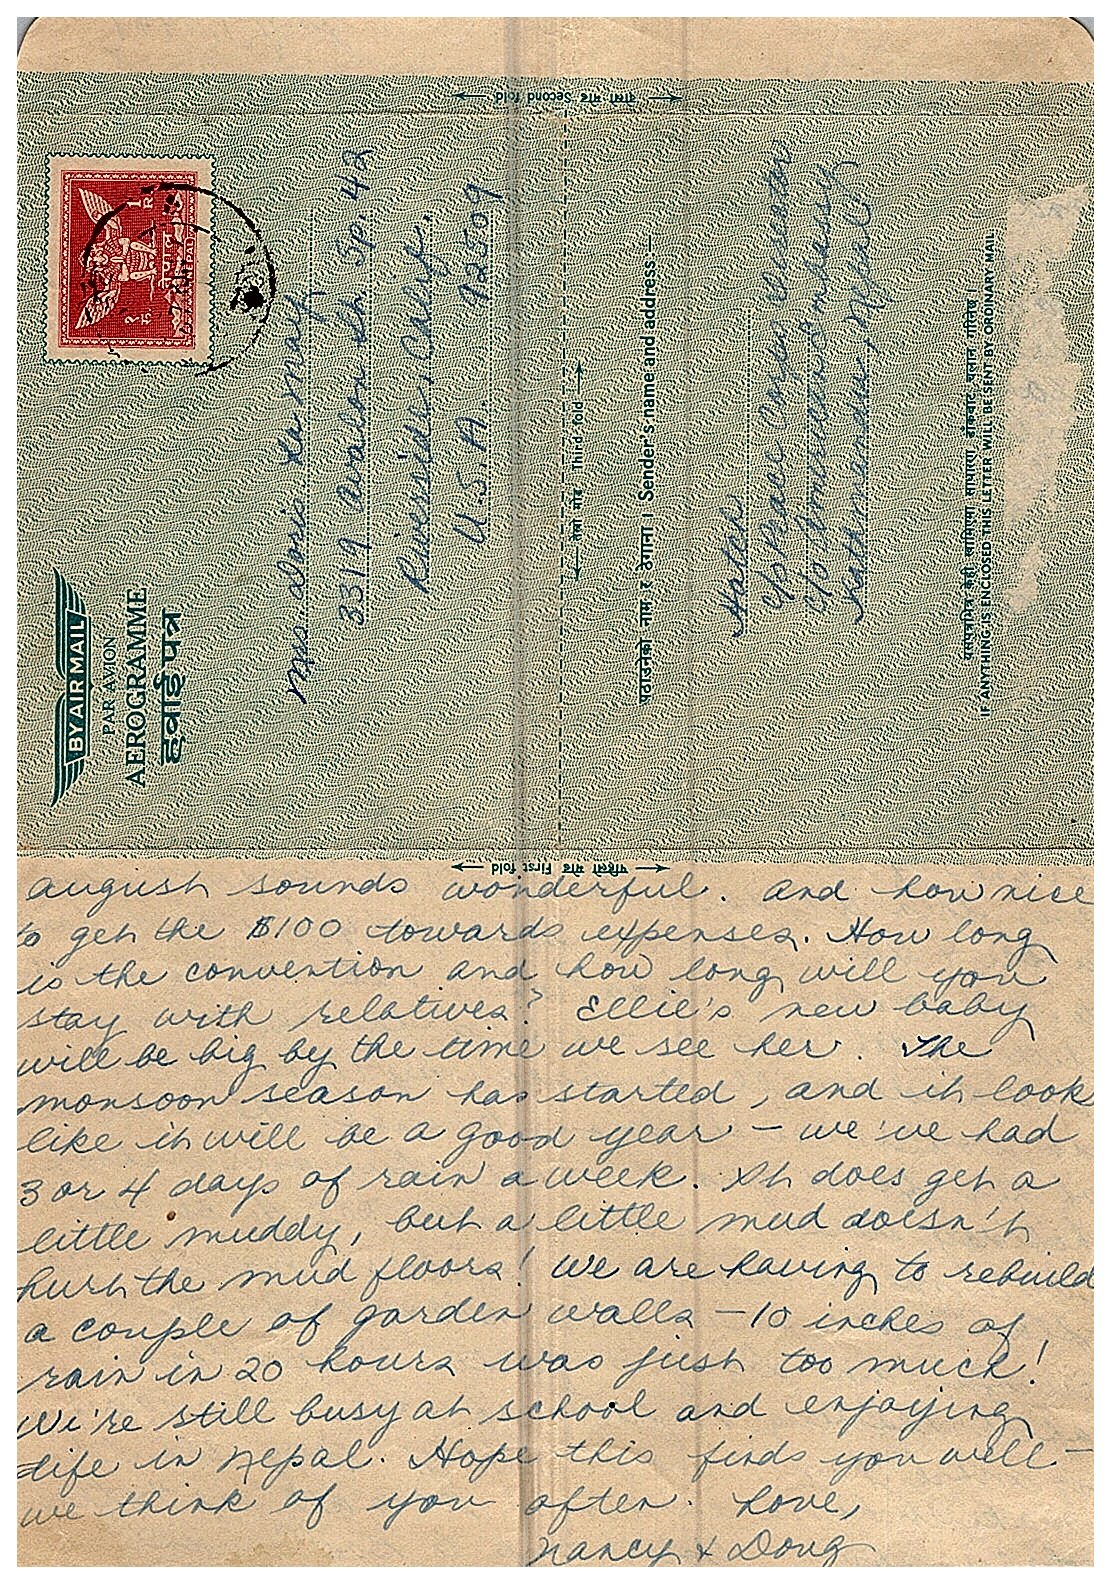 दोस्रो मोड Second fold
१ रु.
नेपाल
NEPAL
1 R
BY AIR MAIL
PAR AVION
AEROGRAMME
हवाईपत्र
Mrs. Doris La May
3319 Avalon St. Sp. 42
Riverside, Calif.
U.S.A. 92509
तेस्रो मोड Third fold
पठाउनेको नाम र ठेगाना । Sender's name and address
Hatch
c/o Peace Corps
c/o American Embassy
Kathmandu, Nepal
IF ANYTHING IS ENCLOSED THIS LETTER WILL BE SENT BY ORDINARY MAIL
पहिलो मोड First fold
August sounds wonderful. And how nice
to get the $100 towards expenses. How long
is the convention and how long will you
stay with relatives? Ellie's new baby
will be big by the time we see her. The
monsoon season has started, and it looks
like it will be a good year – we've had
3 or 4 days of rain a week. It does get a
little muddy, but a little mud doesn't
hurt the mud floors! We are having to rebuild
a couple of garden walls – 10 inches of
rain in 20 hours was just too much!
We're still busy at school and enjoying
life in Nepal. Hope this finds you well –
we think of you often. Love,
Nancy & Doug